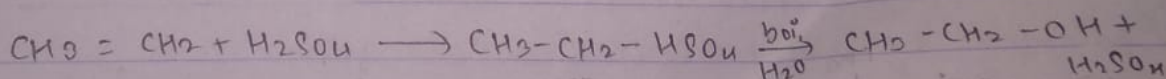 CH3 = CH2 + H2SO4 ⟶ CH3-CH2-HSO4 boil→ H2O CH3-CH2-OH +
H2SO4